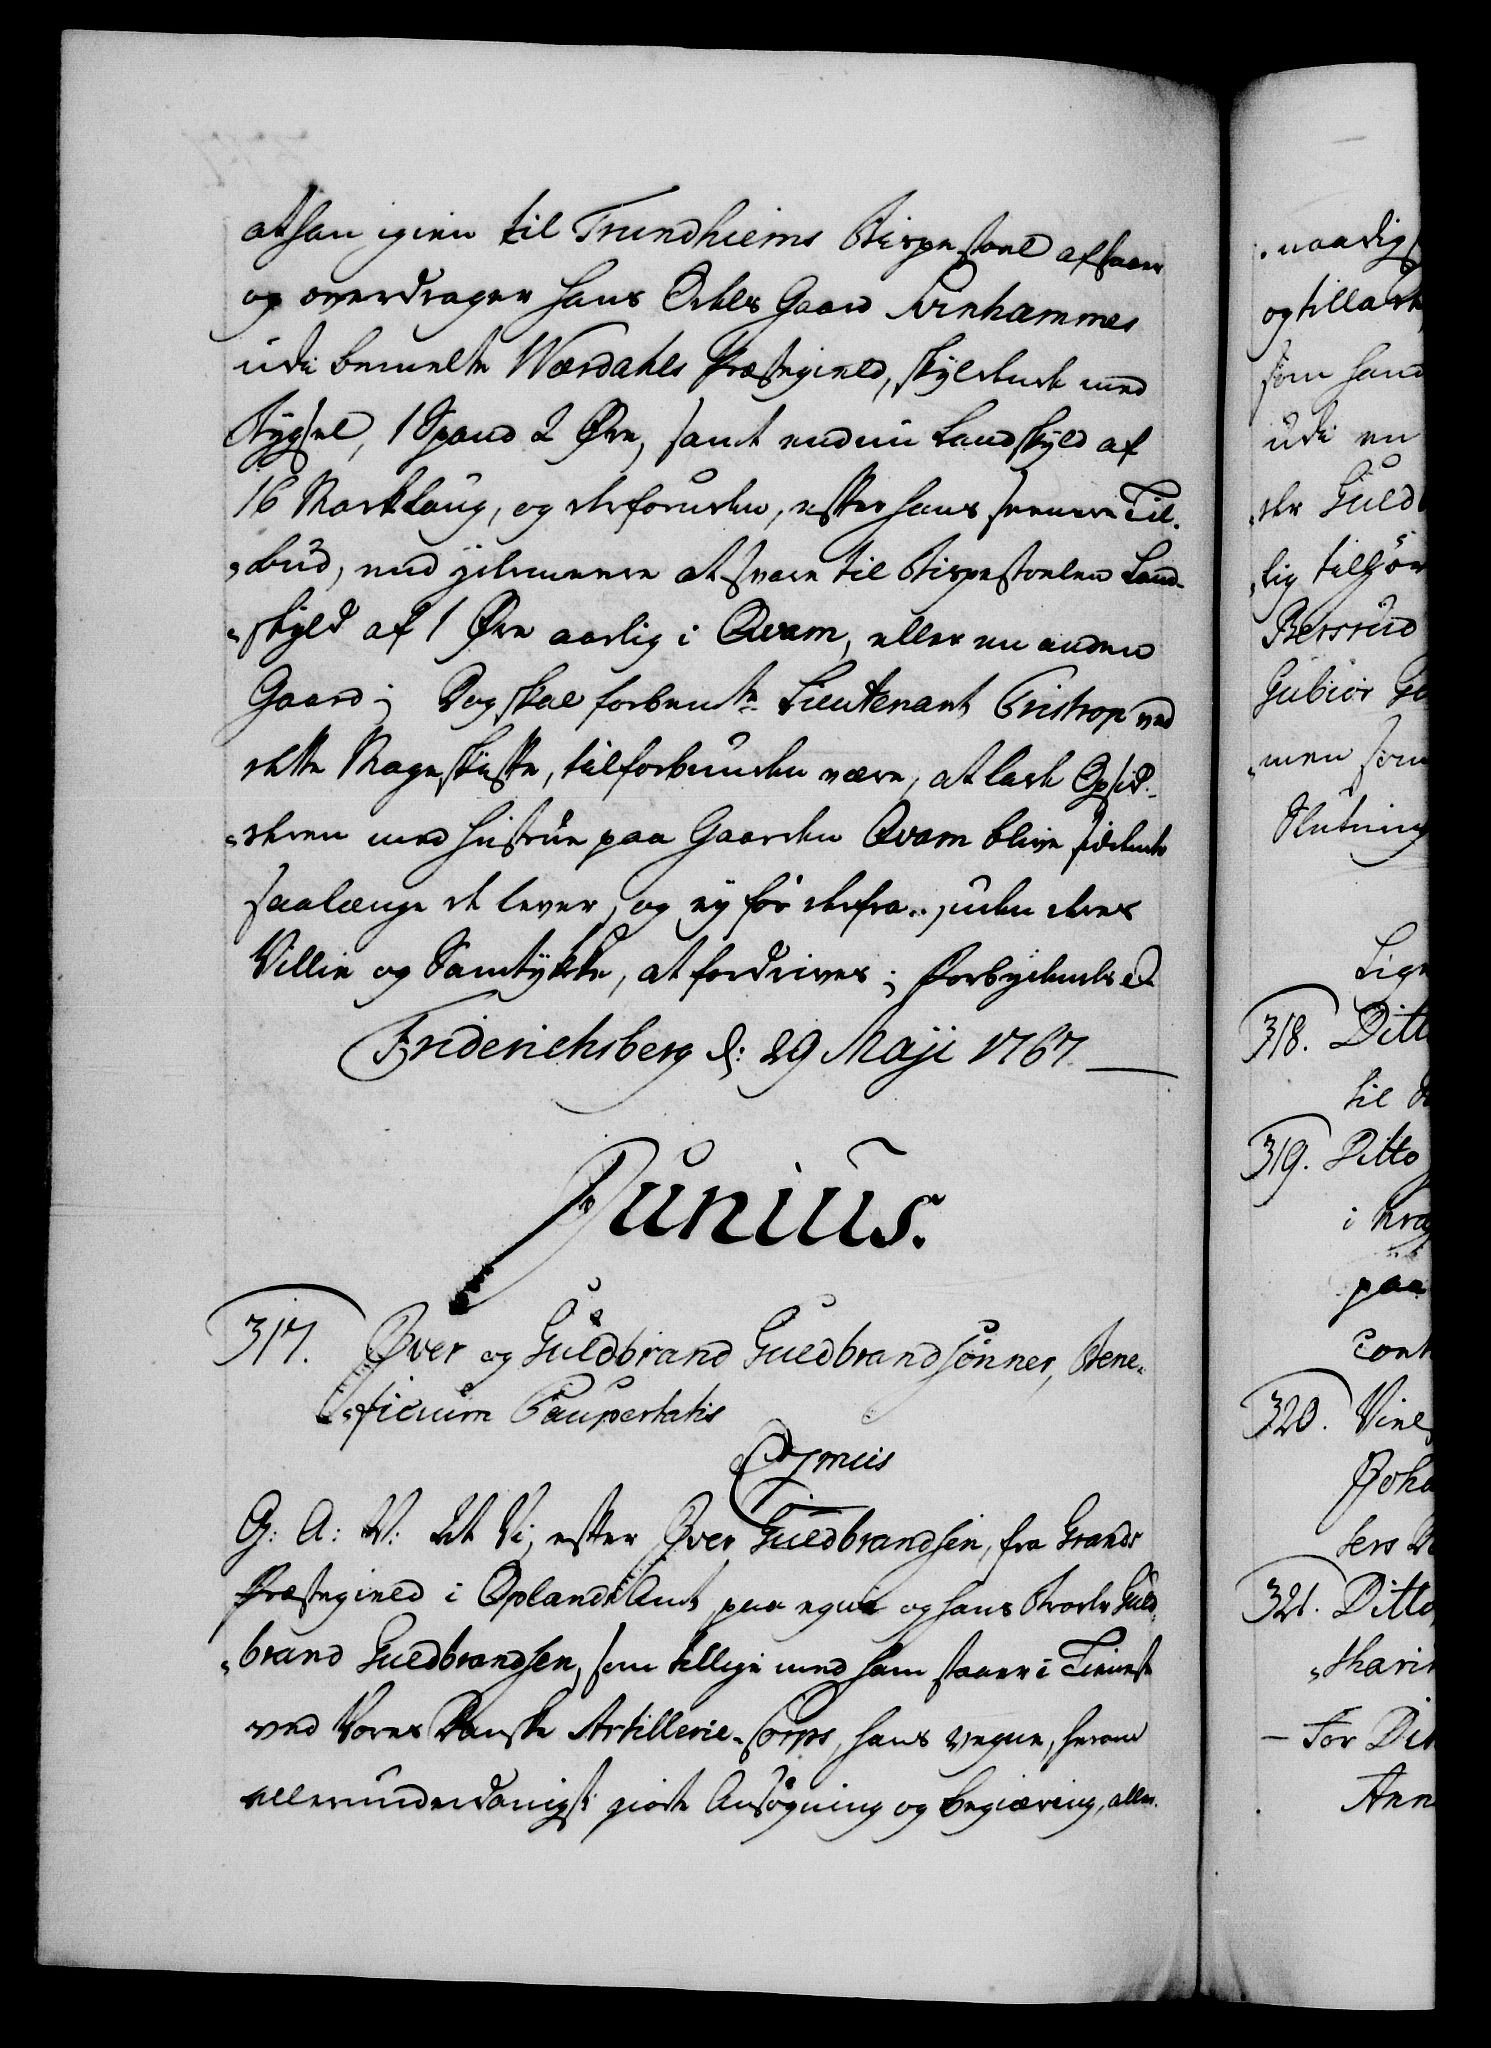 at han igien til Trundhiems Bispestoel afstaaer
og overdrager hans Odels Gaard
udi bemelte Wærdahls Præstegield, skyldende med
Bygsel, 1 Spand 2 Øre, samt endnu Landskyld af
16 Marklaug, og desforuden, efter hans seenere Til-
„bud, med at svare til Bispestoelen Land-
„skyld af 1 Øre aarlig i Qvam, eller en anden
Gaard; Dog skal forbemte Lieutenant Tristrop ved
dette Mageskifte, tilforbunden være, at lade Opsid-
„deren med Hustrue paa Gaarden Qvam blive siddende
saalænge de lever, og ey fór derfra, uden deres
Villie og Samtykke, at fordrives; Forbydendes &
Friderichsberg d: 29 Maji 1767.
Junius.
317. Iver og Guldbrand Guldbrandsönner, Bene-
„ficium Paupertatis
G: A: V: At Vi, efter Iver Guldbrandsen, fra Grands
Præstegield i Oplands Amt, paa egne og hans Broder Guld-
„brand Guldbrandsen, som tillige med ham staaer i Tieneste
ved Vores Danske Artillerie-Corps, hans vegne, herom
allerunderdanigst giorte Ansögning og begiæring, aller-
naadigst
og tillade
som hand
udi en
der Guldb
lig tilhör
Berssrud
Gubiör Gu
men som
Slutning
Lige
318. Ditto
til
319. Ditto
i Kra
paa
Cont
320. Vine
Joha
sers
321. Ditto
For Dit
Ann